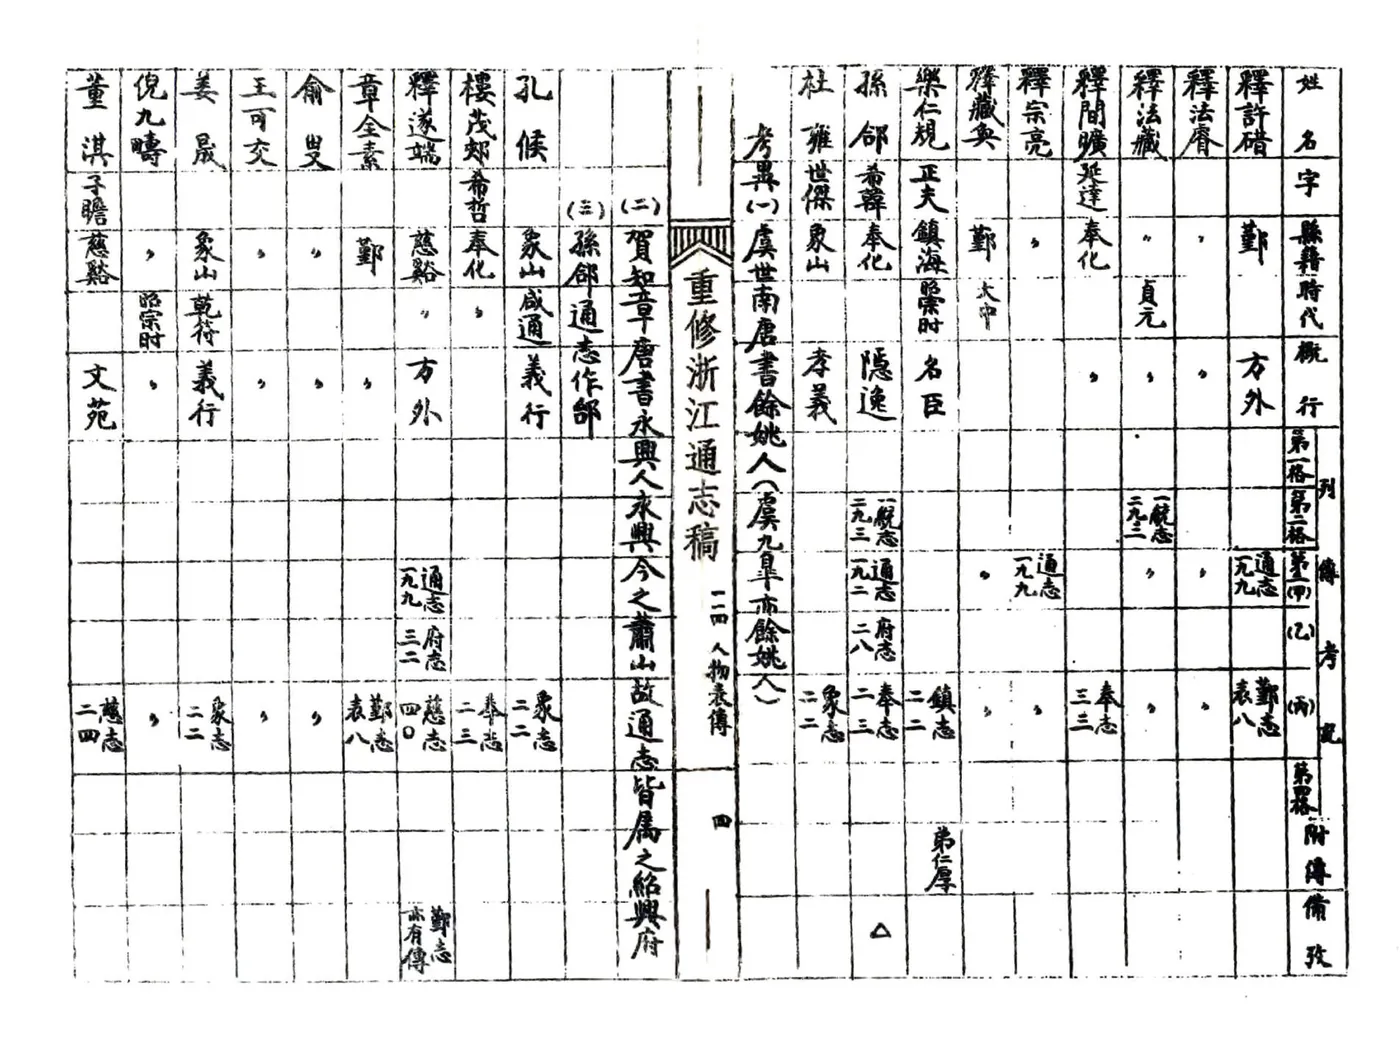 姓名 字 縣籍 時代 概行 列傳考況 第一格 第二格 第三(甲) (乙) (丙) 第四格 附傳 備攷
釋許碏 鄞 方外 通志一九九 鄞志表八
釋法膺 〃 〃 〃 〃
釋法藏 〃 貞元 〃 一統志二九二 〃 〃
釋間曠 延達 奉化 〃 奉志三三
釋宗亮 〃 通志一九九 〃
釋藏奐 鄞 大中 〃 〃
樂仁規 正夫 鎮海 昭宗时 名臣 鎮志二二 弟仁厚
孫郃 希韓 奉化 隱逸 一統志二九三 通志一九二 府志二八 奉志二三 △
杜雍 世傑 象山 孝義 象志二二
考異(一)虞世南唐書餘姚人(虞九臯亦餘姚人)
重修浙江通志稿 一一四 人物表傳 四
(二)賀知章唐書永興人永興今之蕭山故通志皆屬之紹興府
(三)孫郃通志作郘
孔候 象山 咸通 義行 象志二二
樓茂郟 希哲 奉化 〃 奉志二三
釋遂端 慈谿 〃 方外 通志一九九 府志三二 慈志四〇 鄞志亦有傳
章全素 鄞 〃 鄞志表八
俞叟 〃 〃 〃
王可交 〃 〃 〃
姜晟 象山 乾符 義行 象志二二
倪九疇 〃 昭宗时 〃 〃
董淇 子瞻 慈谿 文苑 慈志二四